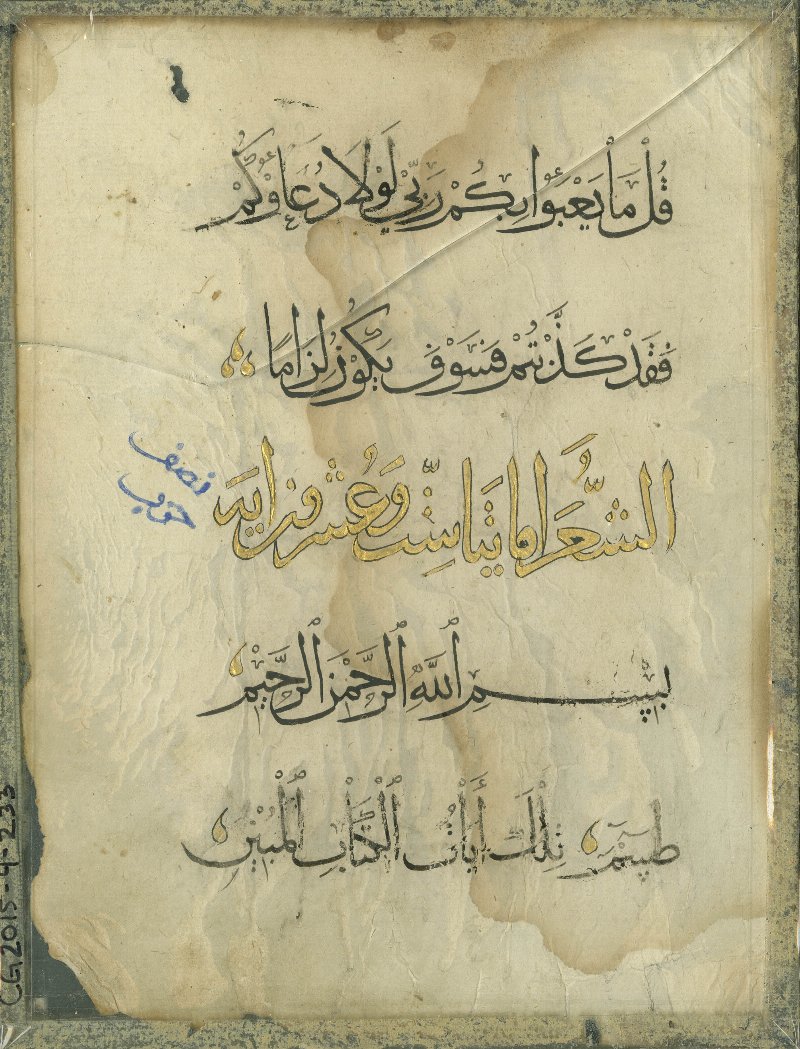 قُلْ مَا يَعْبَؤُا بِكُمْ رَبِّي لَوْلَا دُعَاؤُكُمْ
فَقَدْ كَذَّبْتُمْ فَسَوْفَ يَكُونُ لِزَامًا
الشُّعَرَا مايتا سِتّ وَعُشْرُونَ ايَة
نصف
حزب
بِسْمِ ٱللَّهِ ٱلرَّحْمَنِ ٱلرَّحِيْمِ
طسم تِلْكَ أَيَاتُ ٱلْكِتَابِ ٱلْمُبِيْنِ
CG2015-4-233